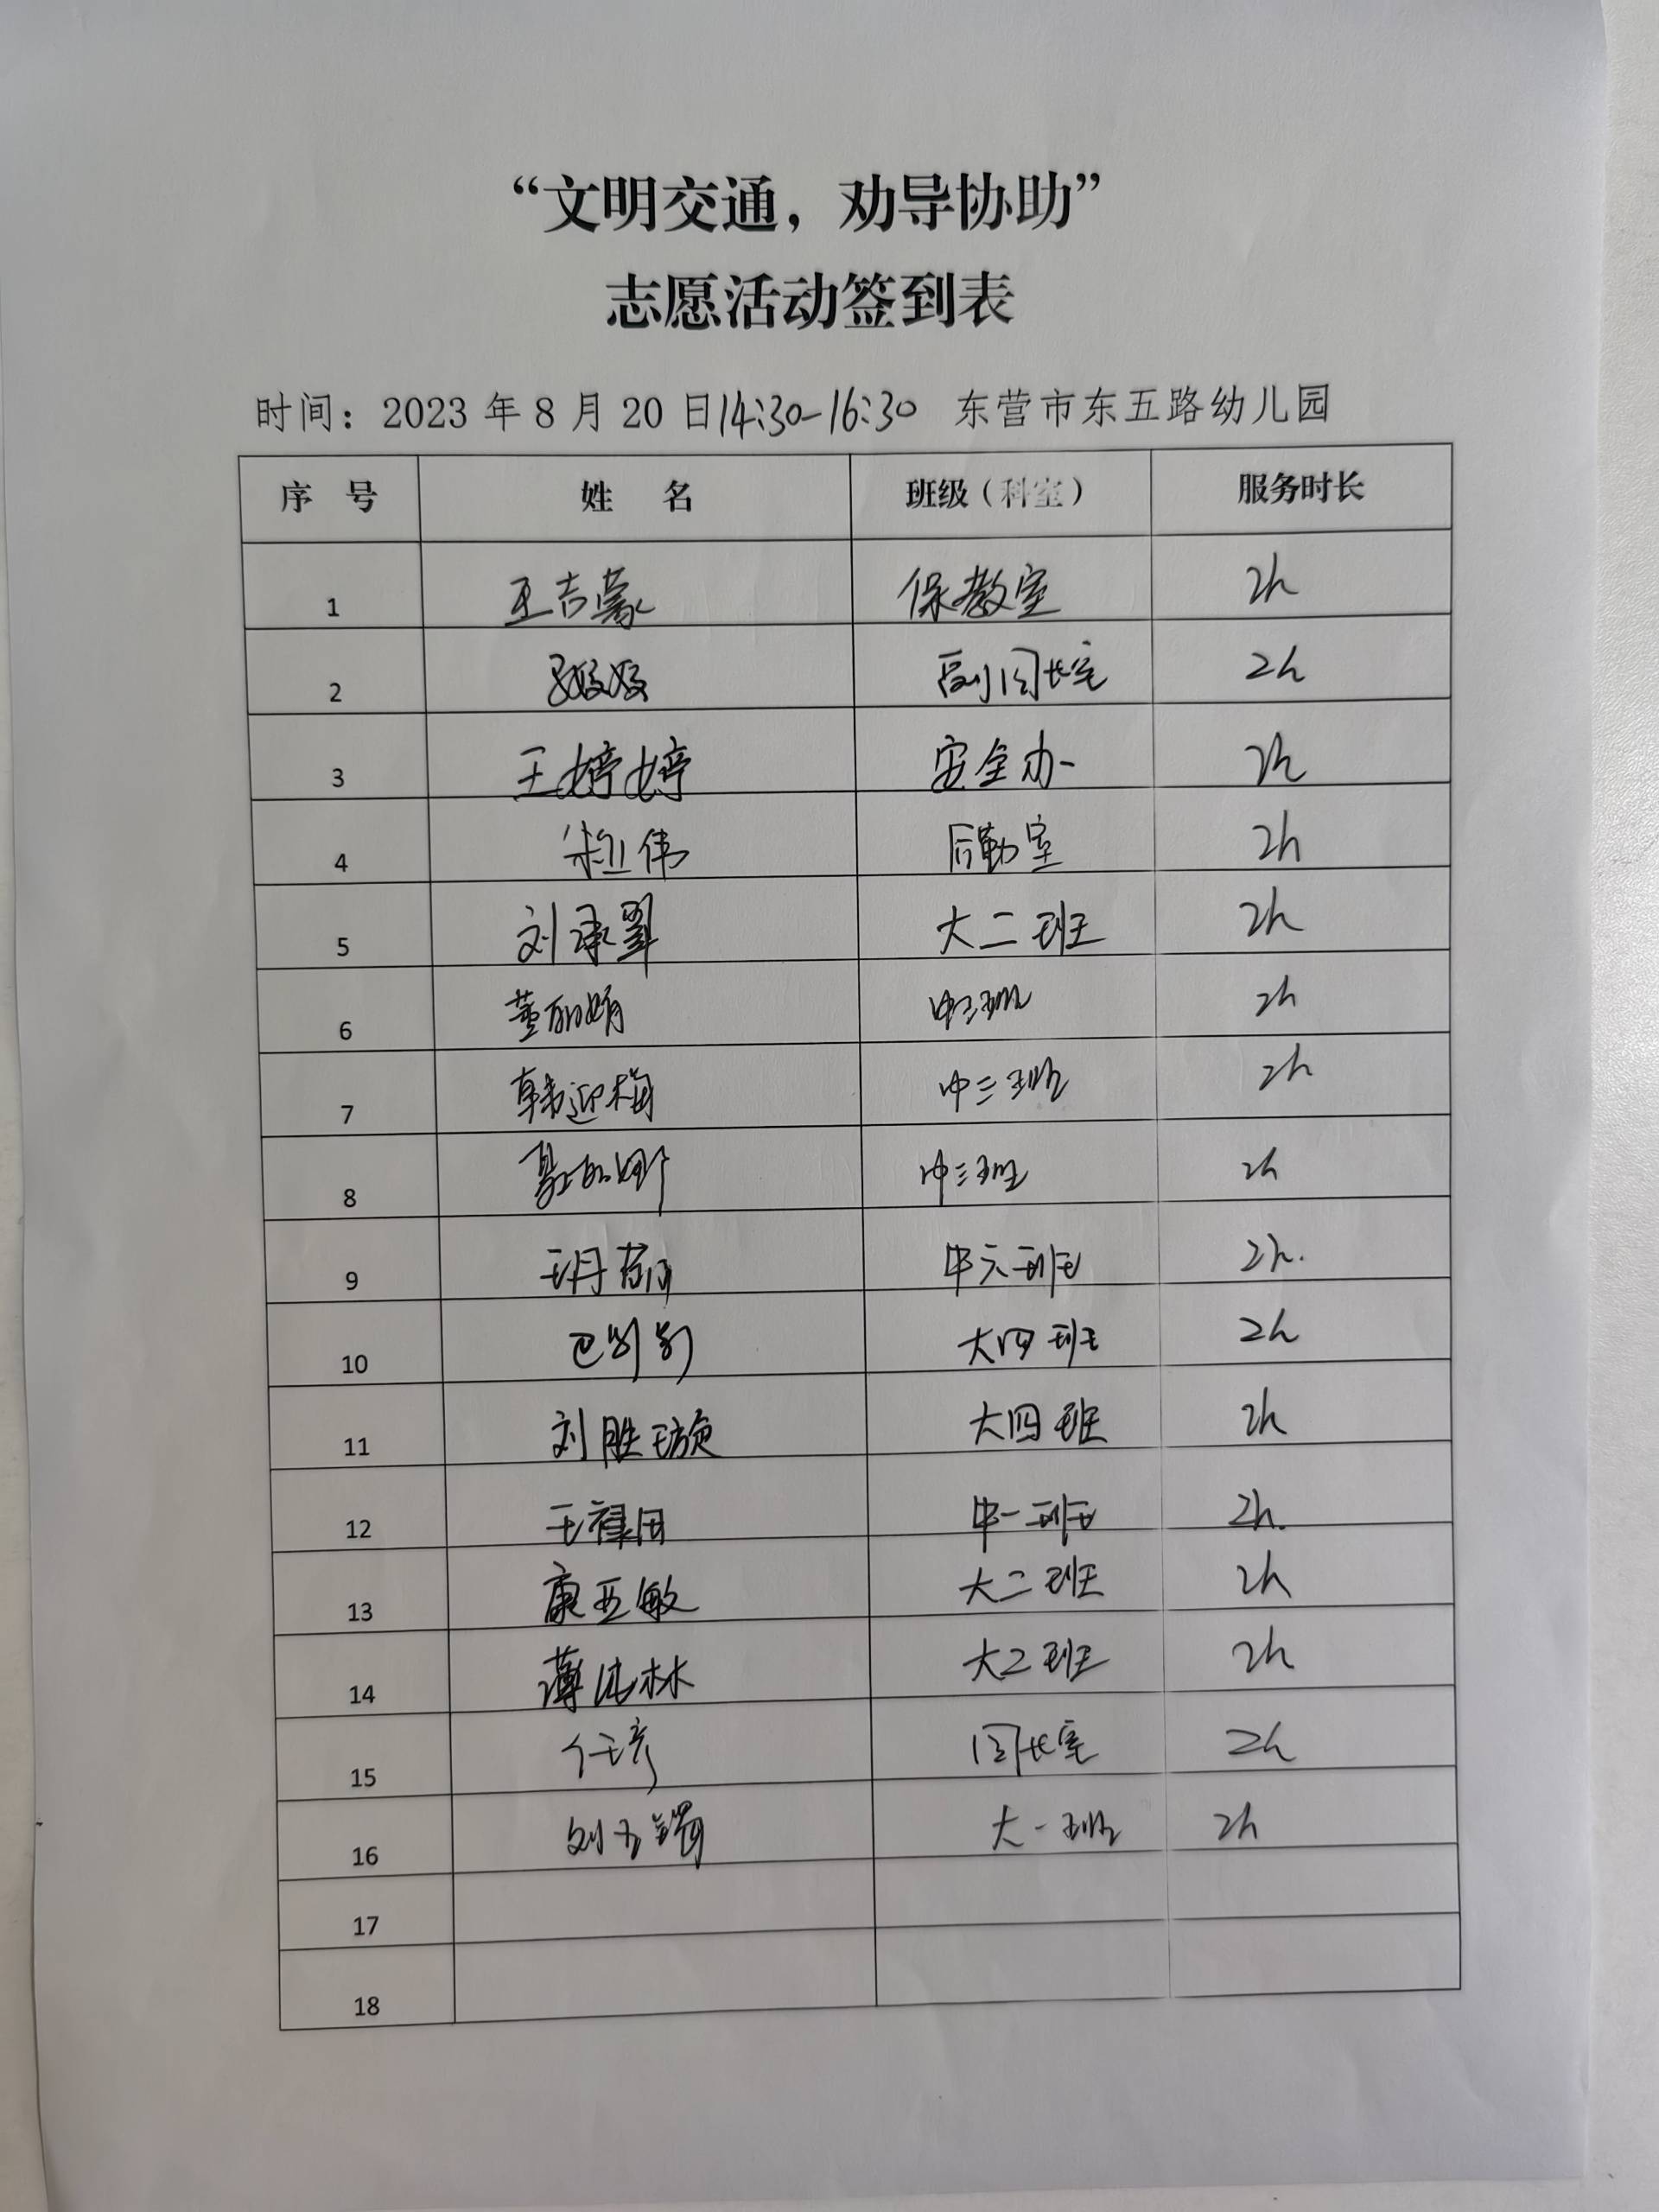 “文明交通，劝导协助”
志愿活动签到表
时间：2023 年 8 月 20 日14:30-16:30 东营市东五路幼儿园
序 号 姓 名 班级（科室） 服务时长
1 王吉蒙 保教室 2h
2 副园长室 2h
3 王婷婷 安全办 2h
4 伟 后勤室 2h
5 刘承 大二班 2h
6 董丽娟 中三班 2h
7 韩迎梅 中三班 2h
8 中三班 2h
9 王丹 中六班 2h.
10 大四班 2h
11 刘胜璇 大四班 2h
12 王禄田 中一班 2h.
13 康亚敏 大二班 2h
14 薄 林 大二班 2h
15 任彦 园长室 2h
16 刘 大一班 2h
17
18